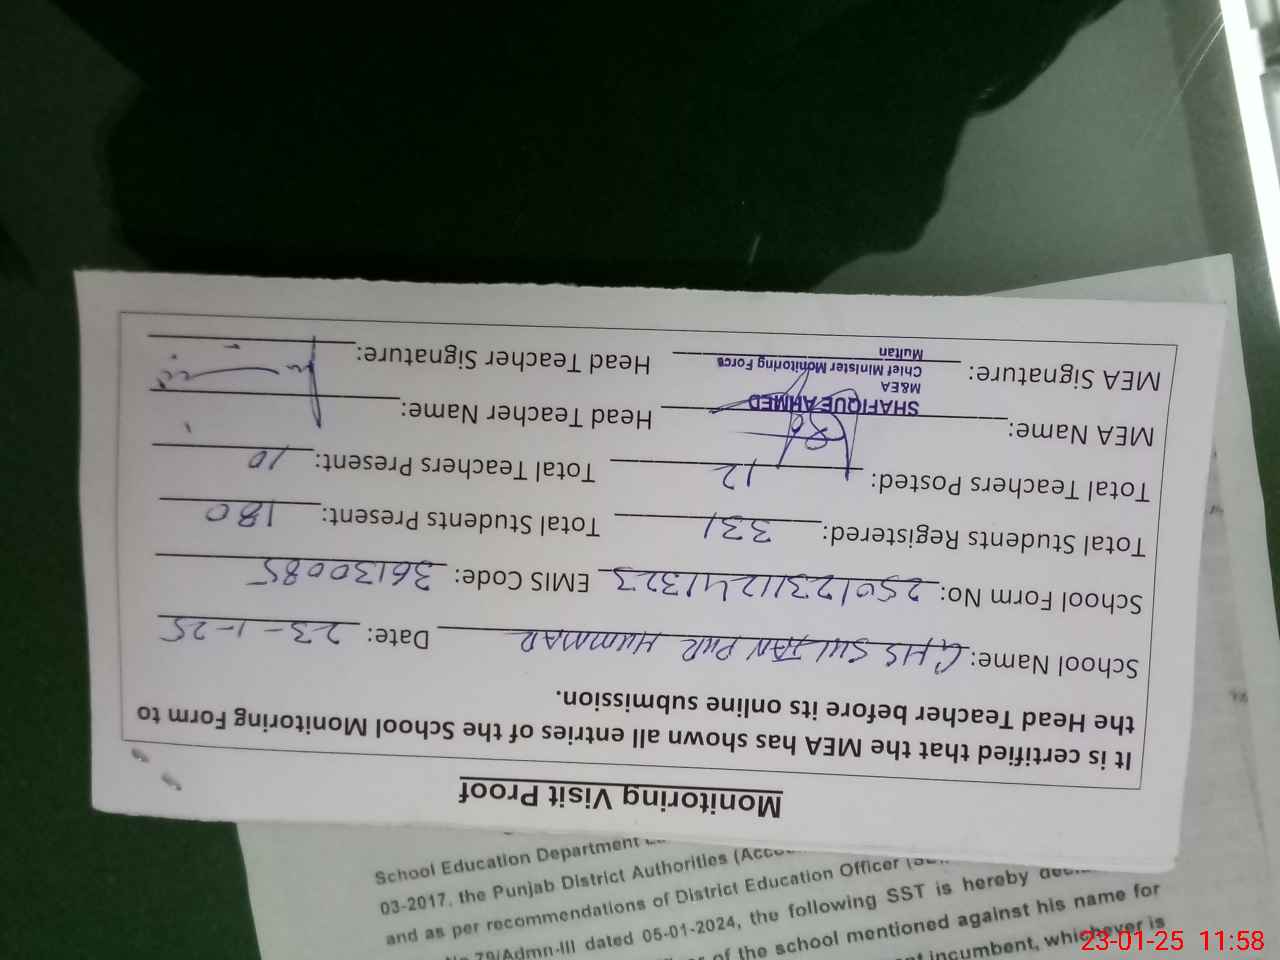 Monitoring Visit Proof
It is certified that the MEA has shown all entries of the School Monitoring Form to
the Head Teacher before its online submission.
School Name: GHS SULTAN PUR HUMMAR Date: 23-1-25
School Form No: 25012311241323 EMIS Code: 36130085
Total Students Registered: 331 Total Students Present: 180
Total Teachers Posted: 12 Total Teachers Present: 10
MEA Name: Head Teacher Name:
SHAFIQUE AHMED
M&EA
Chief Minister Monitoring Force
Multan
MEA Signature: Head Teacher Signature:
School Education Department
03-2017, the Punjab District Authorities
and as per recommendations of District Education Officer
79/Admn-III dated 05-01-2024, the following SST is hereby
of the school mentioned against his name for
incumbent, whichever is
23-01-25 11:58